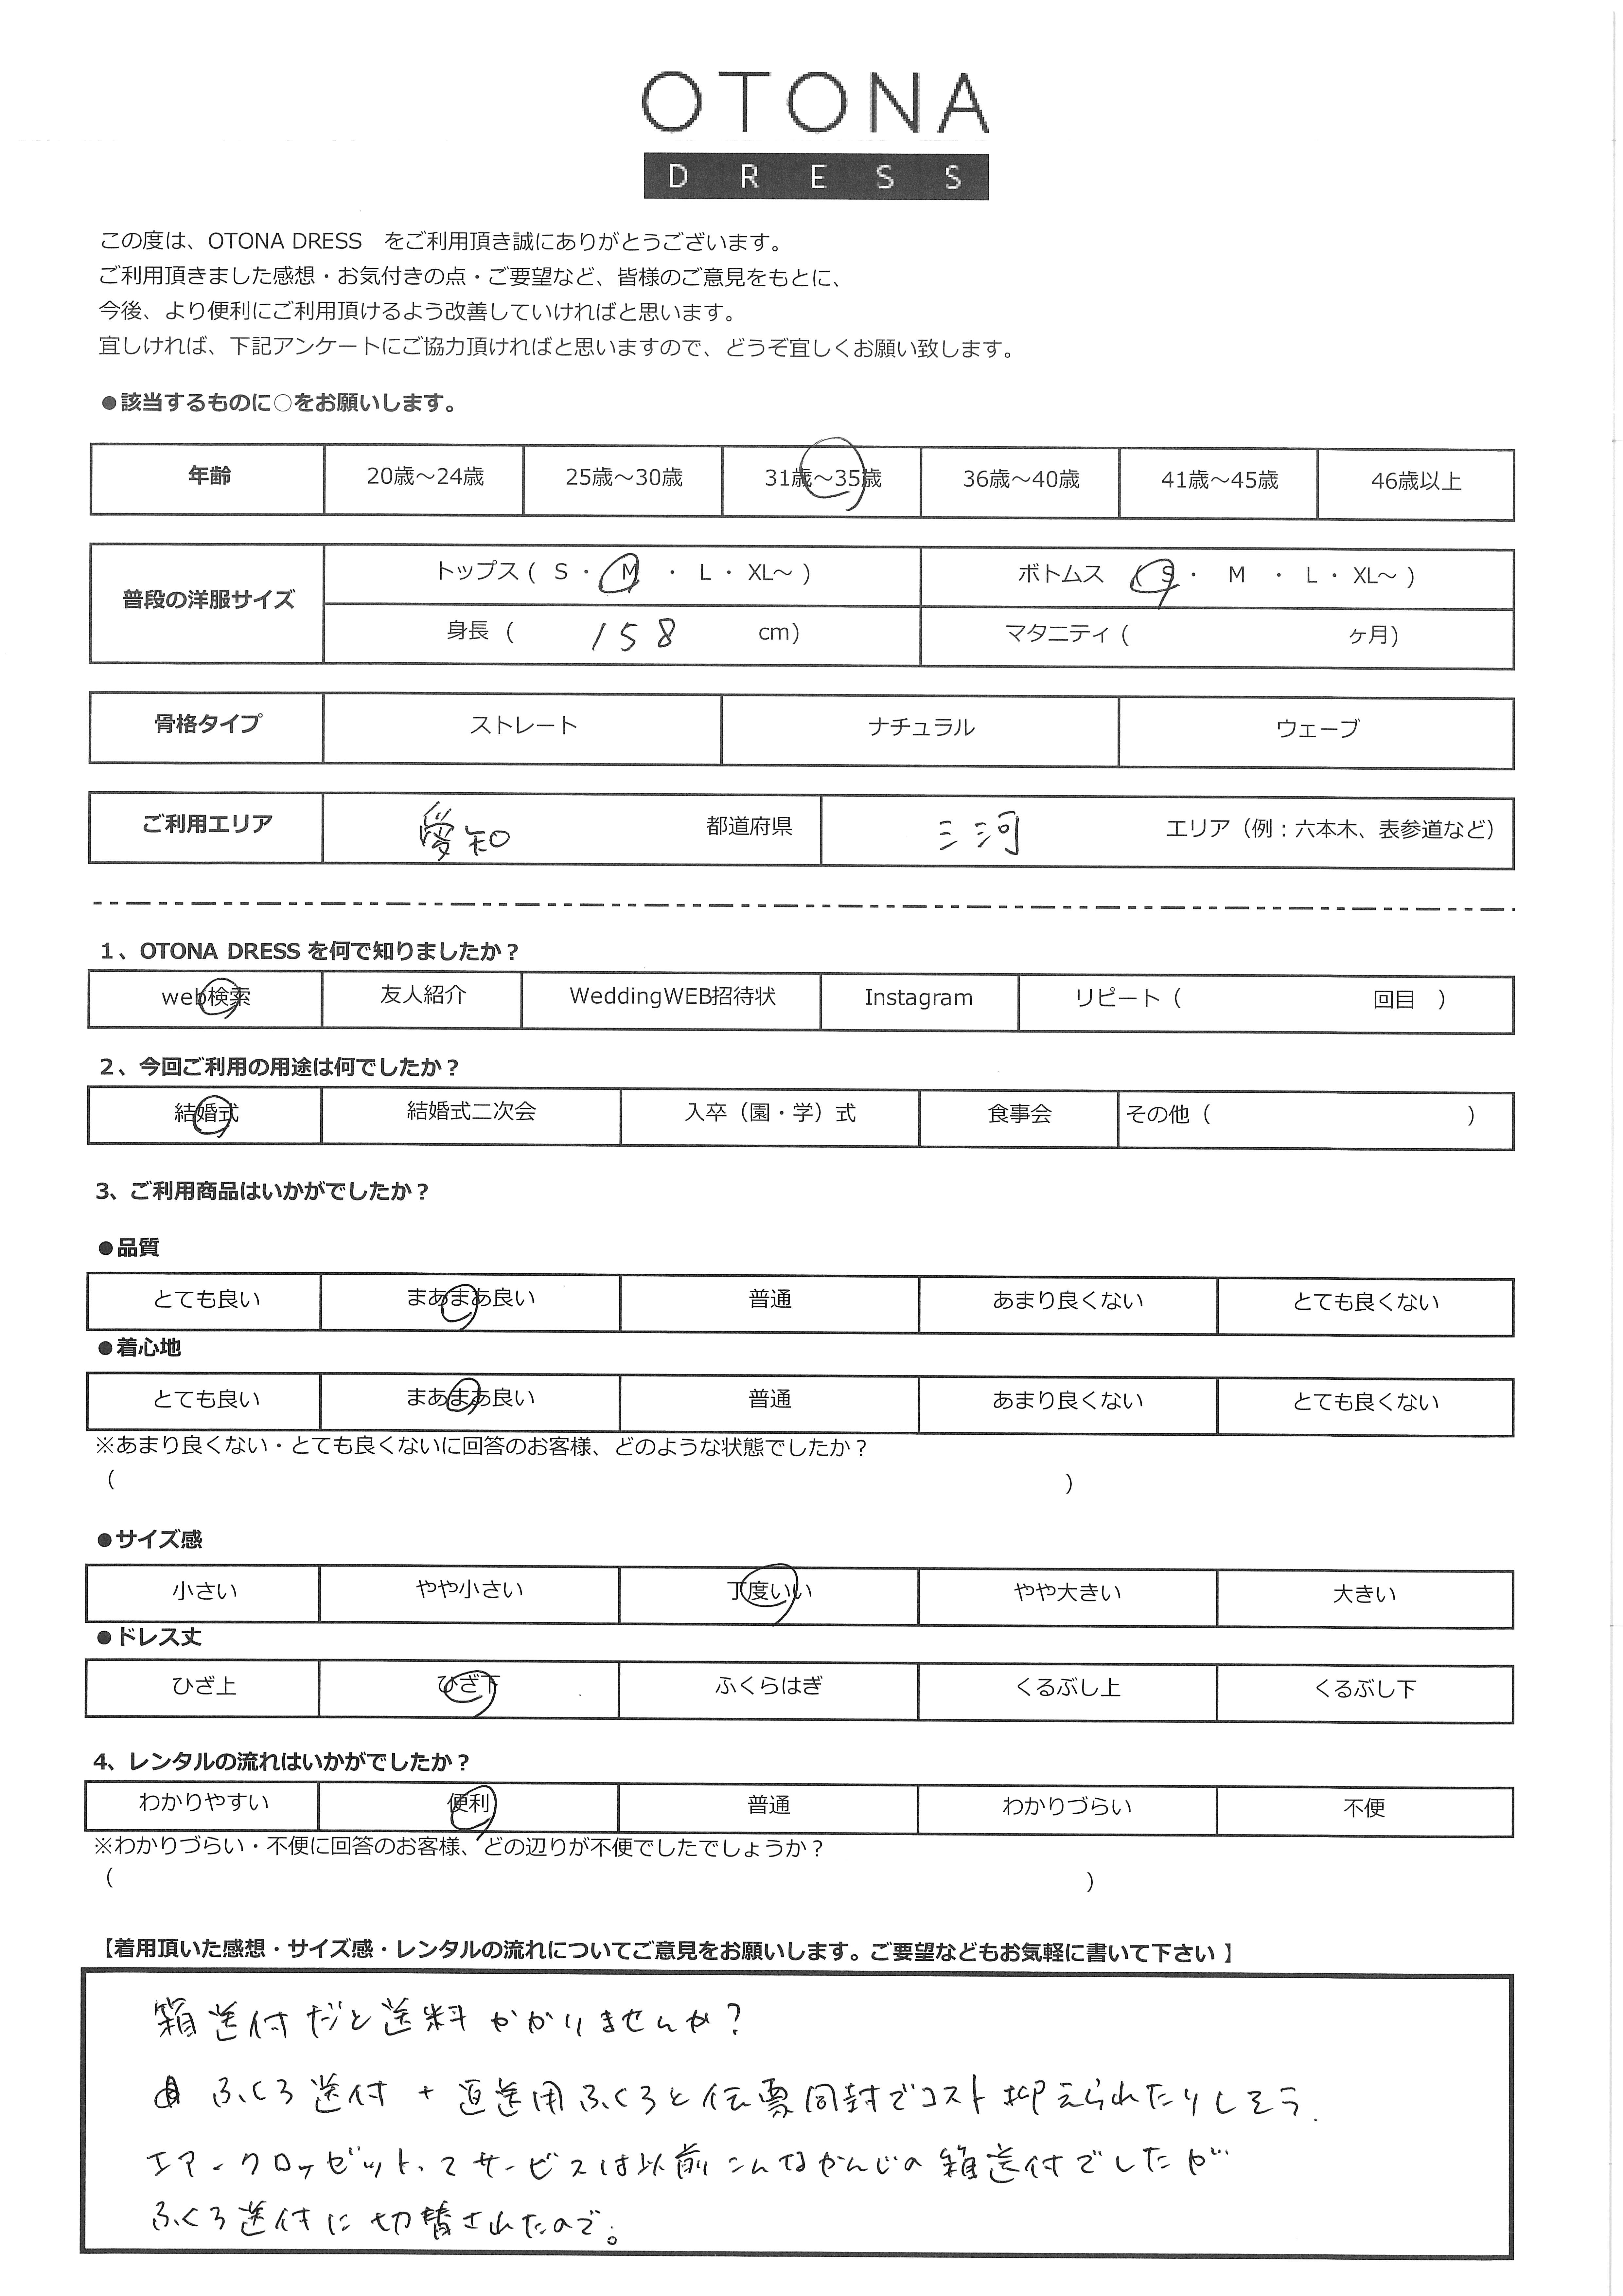 OTONA
DRESS
この度は、OTONA DRESS をご利用頂き誠にありがとうございます。
ご利用頂きました感想・お気付きの点・ご要望など、皆様のご意見をもとに、
今後、より便利にご利用頂けるよう改善していければと思います。
宜しければ、下記アンケートにご協力頂ければと思いますので、どうぞ宜しくお願い致します。
●該当するものに○をお願いします。
年齢 20歳～24歳 25歳～30歳 31歳～35歳 36歳～40歳 41歳～45歳 46歳以上
普段の洋服サイズ トップス ( S ・ M ・ L ・ XL～ ) ボトムス ( S ・ M ・ L ・ XL～ )
身長 ( 158 cm) マタニティ ( ヶ月)
骨格タイプ ストレート ナチュラル ウェーブ
ご利用エリア 愛知 都道府県 三河 エリア（例：六本木、表参道など）
1、OTONA DRESS を何で知りましたか？
web検索 友人紹介 WeddingWEB招待状 Instagram リピート（ 回目 ）
2、今回ご利用の用途は何でしたか？
結婚式 結婚式二次会 入卒（園・学）式 食事会 その他（ ）
3、ご利用商品はいかがでしたか？
●品質
とても良い まあまあ良い 普通 あまり良くない とても良くない
●着心地
とても良い まあまあ良い 普通 あまり良くない とても良くない
※あまり良くない・とても良くないに回答のお客様、どのような状態でしたか？
（ ）
●サイズ感
小さい やや小さい 丁度いい やや大きい 大きい
●ドレス丈
ひざ上 ひざ下 ふくらはぎ くるぶし上 くるぶし下
4、レンタルの流れはいかがでしたか？
わかりやすい 便利 普通 わかりづらい 不便
※わかりづらい・不便に回答のお客様、どの辺りが不便でしたでしょうか？
（ ）
【着用頂いた感想・サイズ感・レンタルの流れについてご意見をお願いします。ご要望などもお気軽に書いて下さい 】
箱送付だと送料かかりませんか？
ふくろ送付 + 返送用ふくろと伝票同封でコスト抑えられたりしそう.
エアークロゼットってサービスは以前こんなかんじの箱送付でしたが
ふくろ送付に切替されたので。